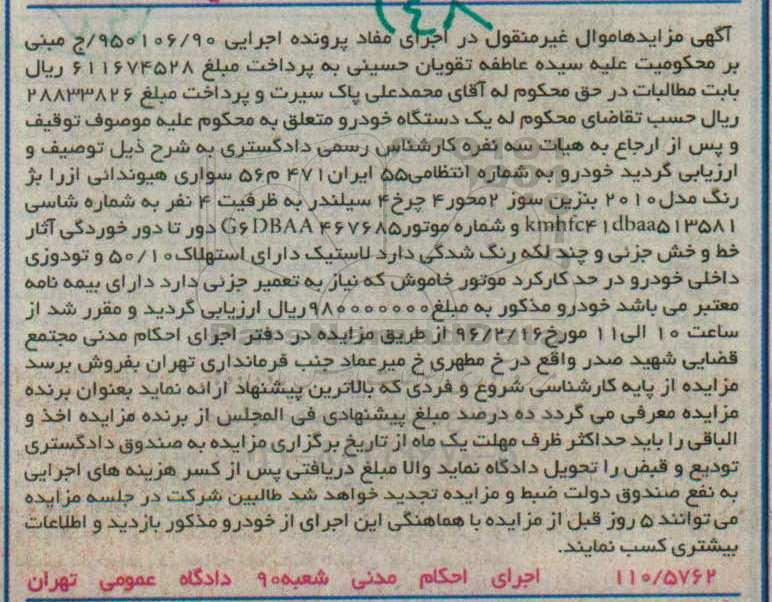 آگهی مزایدهاموال غیرمنقول در اجرای مفاد پرونده اجرایی ۹۵۰۱۰۶/۹۰/ج مبنی
بر محکومیت علیه سیده عاطفه تقویان حسینی به پرداخت مبلغ ۶۱۱۶۷۴۵۲۸ ریال
بابت مطالبات در حق محکوم له آقای محمدعلی پاک سیرت و پرداخت مبلغ ۲۸۸۳۳۸۲۶
ریال حسب تقاضای محکوم له یک دستگاه خودرو متعلق به محکوم علیه موصوف توقیف
و پس از ارجاع به هیات سه نفره کارشناس رسمی دادگستری به شرح ذیل توصیف و
ارزیابی گردید خودرو به شماره انتظامی۵۵ ایران۴۷۱ م۵۶ سواری هیوندائی ازرا بژ
رنگ مدل۲۰۱۰ بنزین سوز ۲محور۴ چرخ۴ سیلندر به ظرفیت ۴ نفر به شماره شاسی
kmhfc۴۱dbaa۵۱۳۵۸۱ و شماره موتورG۶DBAA۴۶۷۶۸۵ دور تا دور خوردگی آثار
خط و خش جزئی و چند لکه رنگ شدگی دارد لاستیک دارای استهلاک۵۰/۱۰ و تودوزی
داخلی خودرو در حد کارکرد موتور خاموش که نیاز به تعمیر جزئی دارد دارای بیمه نامه
معتبر می باشد خودرو مذکور به مبلغ۹۸۰۰۰۰۰۰۰ریال ارزیابی گردید و مقرر شد از
ساعت ۱۰ الی۱۱ مورخ۹۶/۲/۱۶ از طریق مزایده در دفتر اجرای احکام مدنی مجتمع
قضایی شهید صدر واقع در خ مطهری خ میرعماد جنب فرمانداری تهران بفروش برسد
مزایده از پایه کارشناسی شروع و فردی که بالاترین پیشنهاد ارائه نماید بعنوان برنده
مزایده معرفی می گردد ده درصد مبلغ پیشنهادی فی المجلس از برنده مزایده اخذ و
الباقی را باید حداکثر ظرف مهلت یک ماه از تاریخ برگزاری مزایده به صندوق دادگستری
تودیع و قبض را تحویل دادگاه نماید والا مبلغ دریافتی پس از کسر هزینه های اجرایی
به نفع صندوق دولت ضبط و مزایده تجدید خواهد شد طالبین شرکت در جلسه مزایده
می توانند ۵ روز قبل از مزایده با هماهنگی این اجرای از خودرو مذکور بازدید و اطلاعات
بیشتری کسب نمایند.
۱۱۰/۵۷۶۲ اجرای احکام مدنی شعبه۹۰ دادگاه عمومی تهران